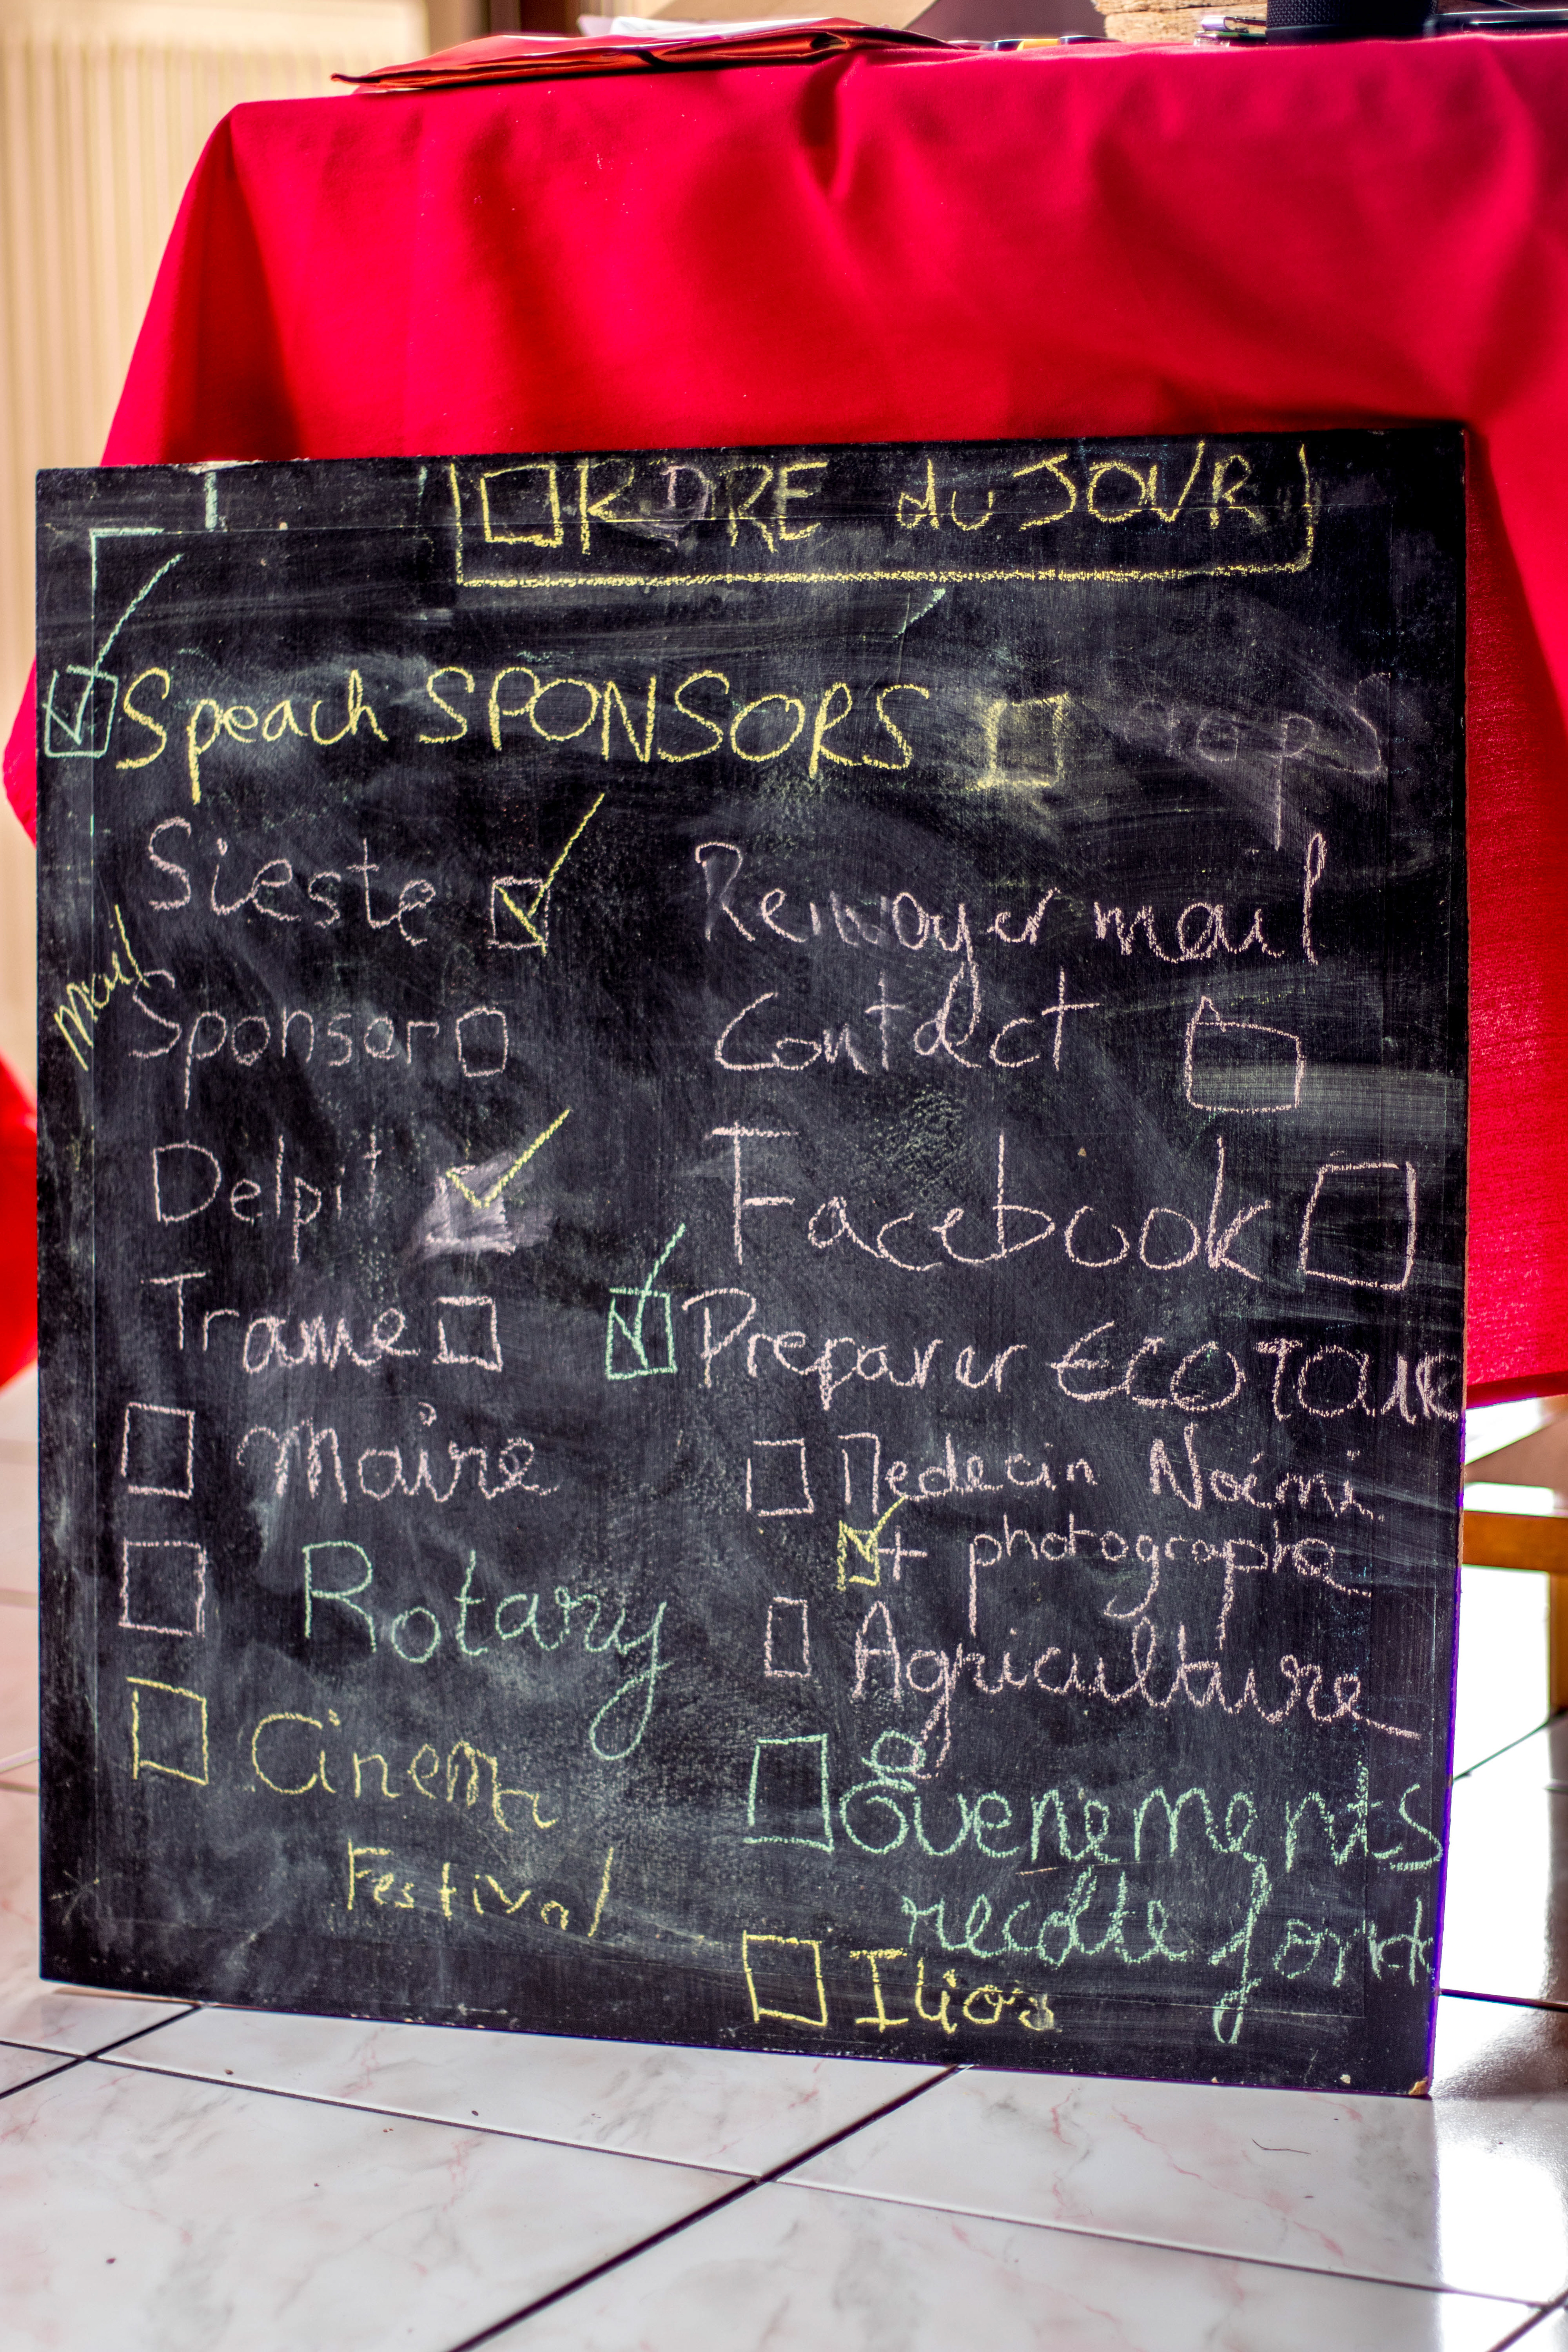 ORDRE du JOUR
Speach SPONSORS
Sieste
mail
Sponsor
Delpit
Trame
Maire
Rotary
Cinema
Festival
Renvoyer mail
Contact
Facebook
Preparer ECOTOUR
Medecin Noémi
+ photographe
Agriculture
Évenements
recolte fonds
Ilios